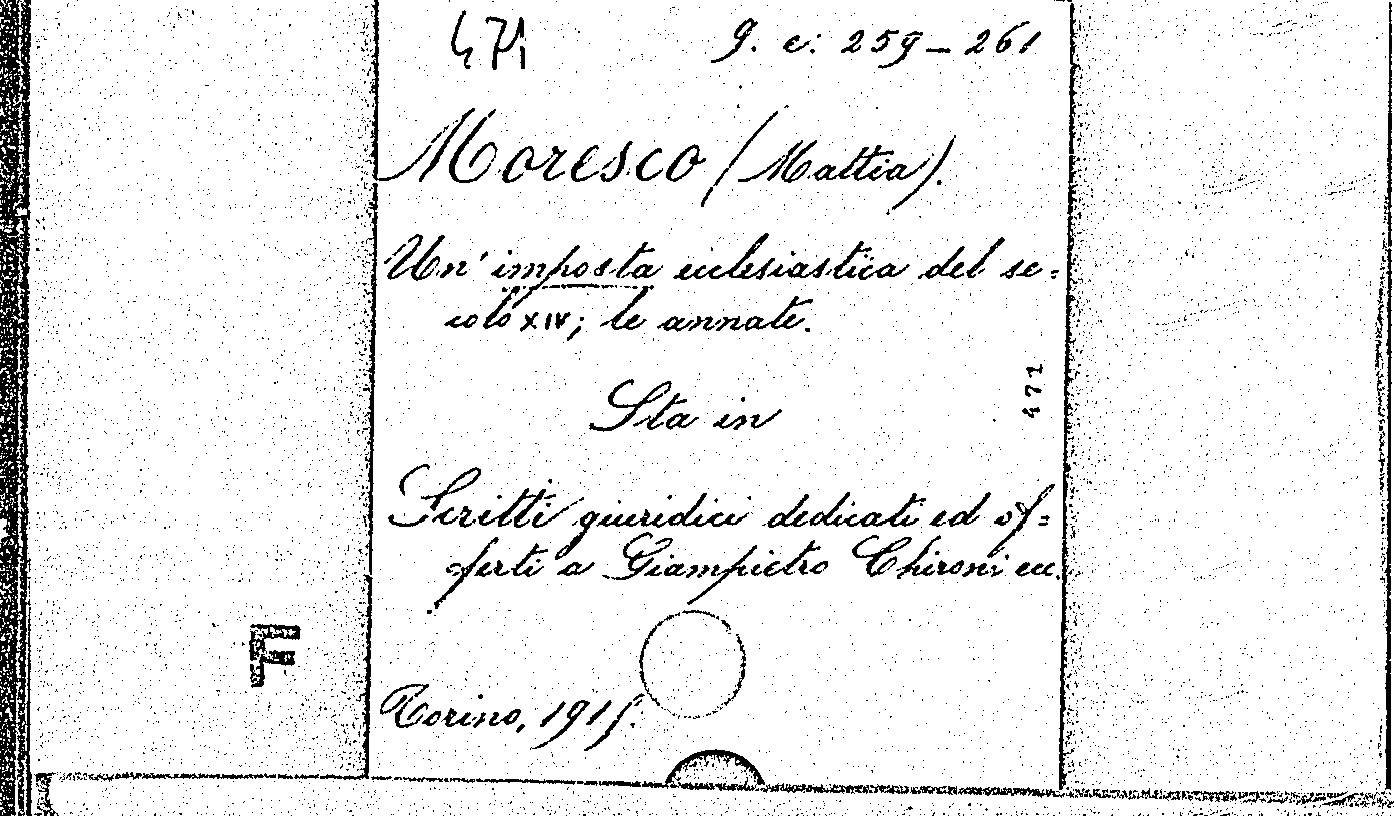 471 g. c: 259-261
Moresco (Mattia).
Un' imposta ecclesiastica del se=
colo XIV; le annate.
Sta in
471
Scritti giuridici dedicati ed of=
ferti a Giampietro Chironi ecc.
F
Torino, 1915.